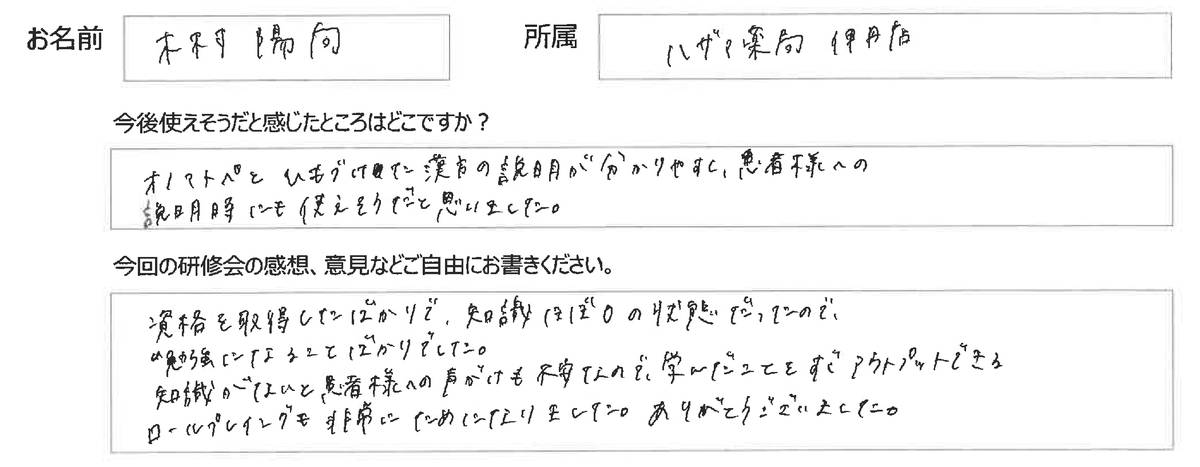 お名前 木村 陽向 所属 ハザマ薬局 伊丹店
今後使えそうだと感じたところはどこですか？
オノマトペとひもづけた漢方の説明が分かりやすく、患者様への
説明時にも使えそうだと思いました。
今回の研修会の感想、意見などご自由にお書きください。
資格を取得したばかりで、知識ほぼ0の状態だったので、
勉強になることばかりでした。
知識がないと患者様への声がけも不安なので、学んだことをすぐアウトプットできる
ロールプレイングも非常にためになりました。ありがとうございました。